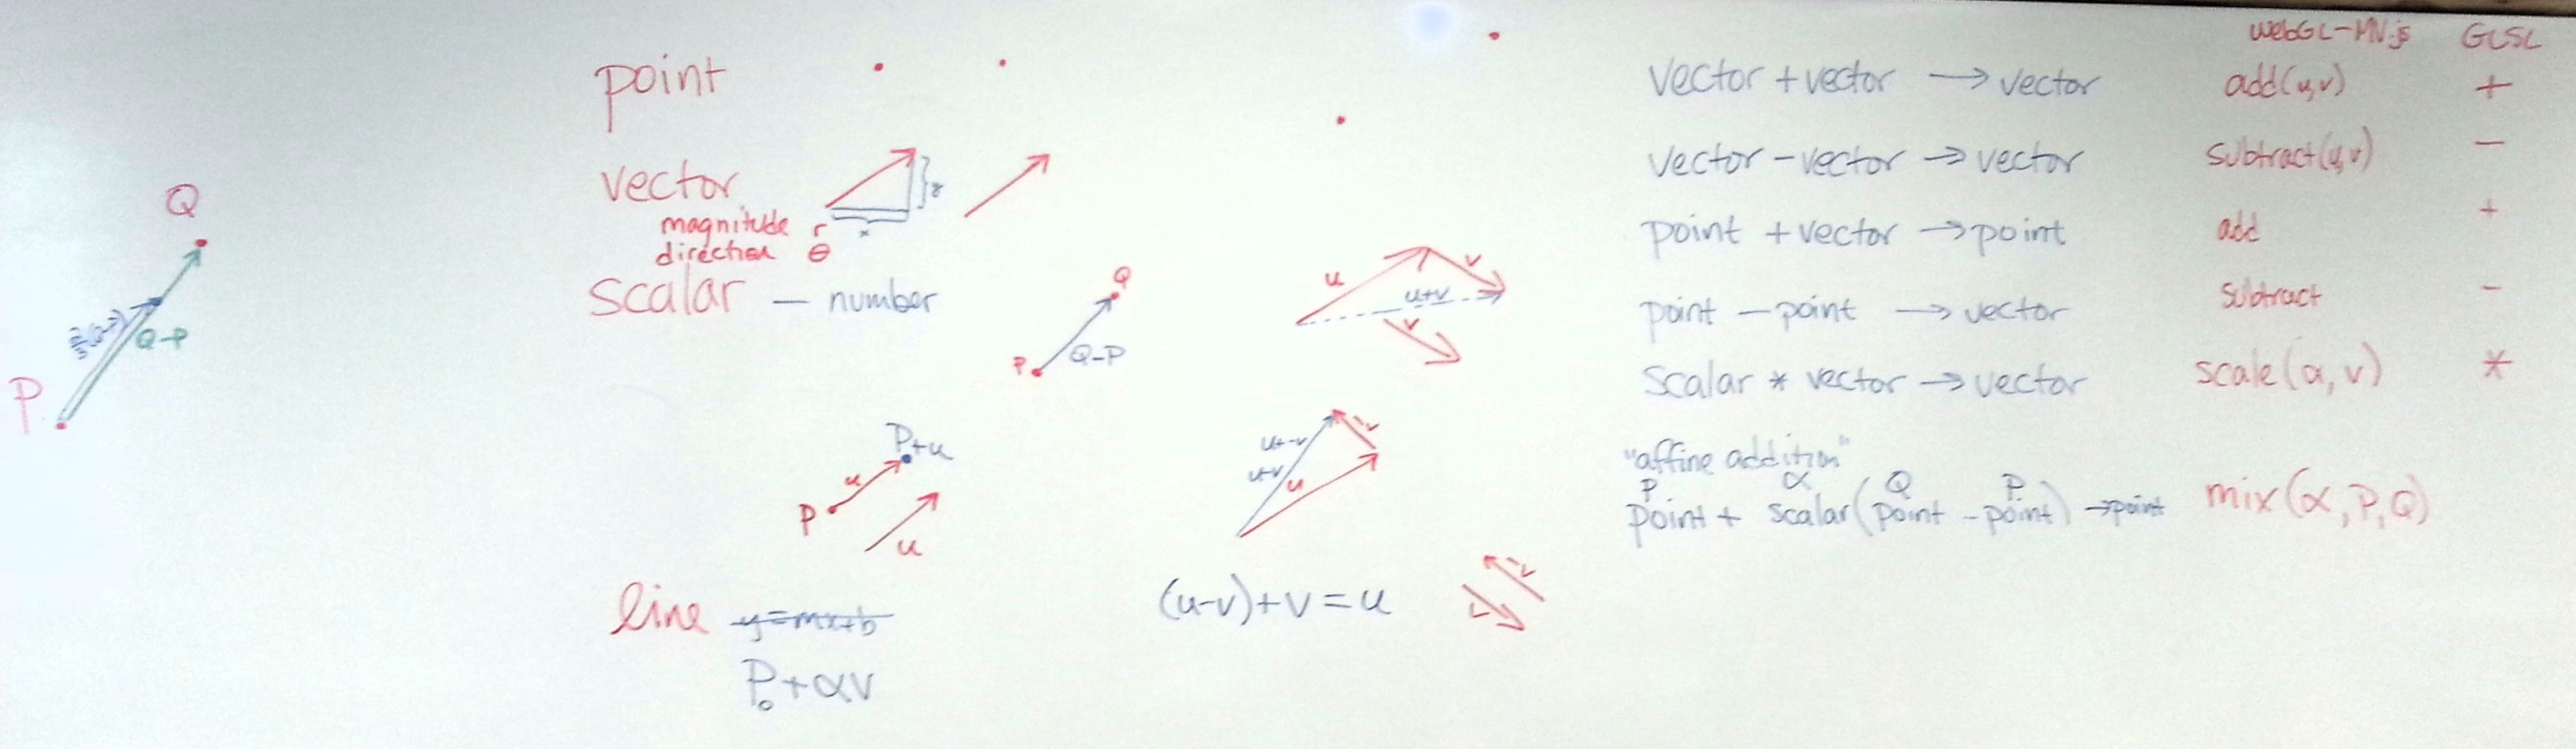 Q
Q-P
P
point
vector
x
y
magnitude r
direction θ
scalar — number
Q
P
Q-P
P+u
u
P
u
line y=mx+b
P₀+αv
u
v
u+v
v
u+-v
-v
u+v
u
(u-v)+v=u
v
-v
webGL-MV.js GLSL
vector + vector → vector add(u,v) +
vector - vector → vector subtract(u,v) -
point + vector → point add +
point - point → vector subtract -
scalar * vector → vector scale(α,v) *
"affine addition"
P α Q P
point + scalar(point - point) → point mix(α,P,Q)